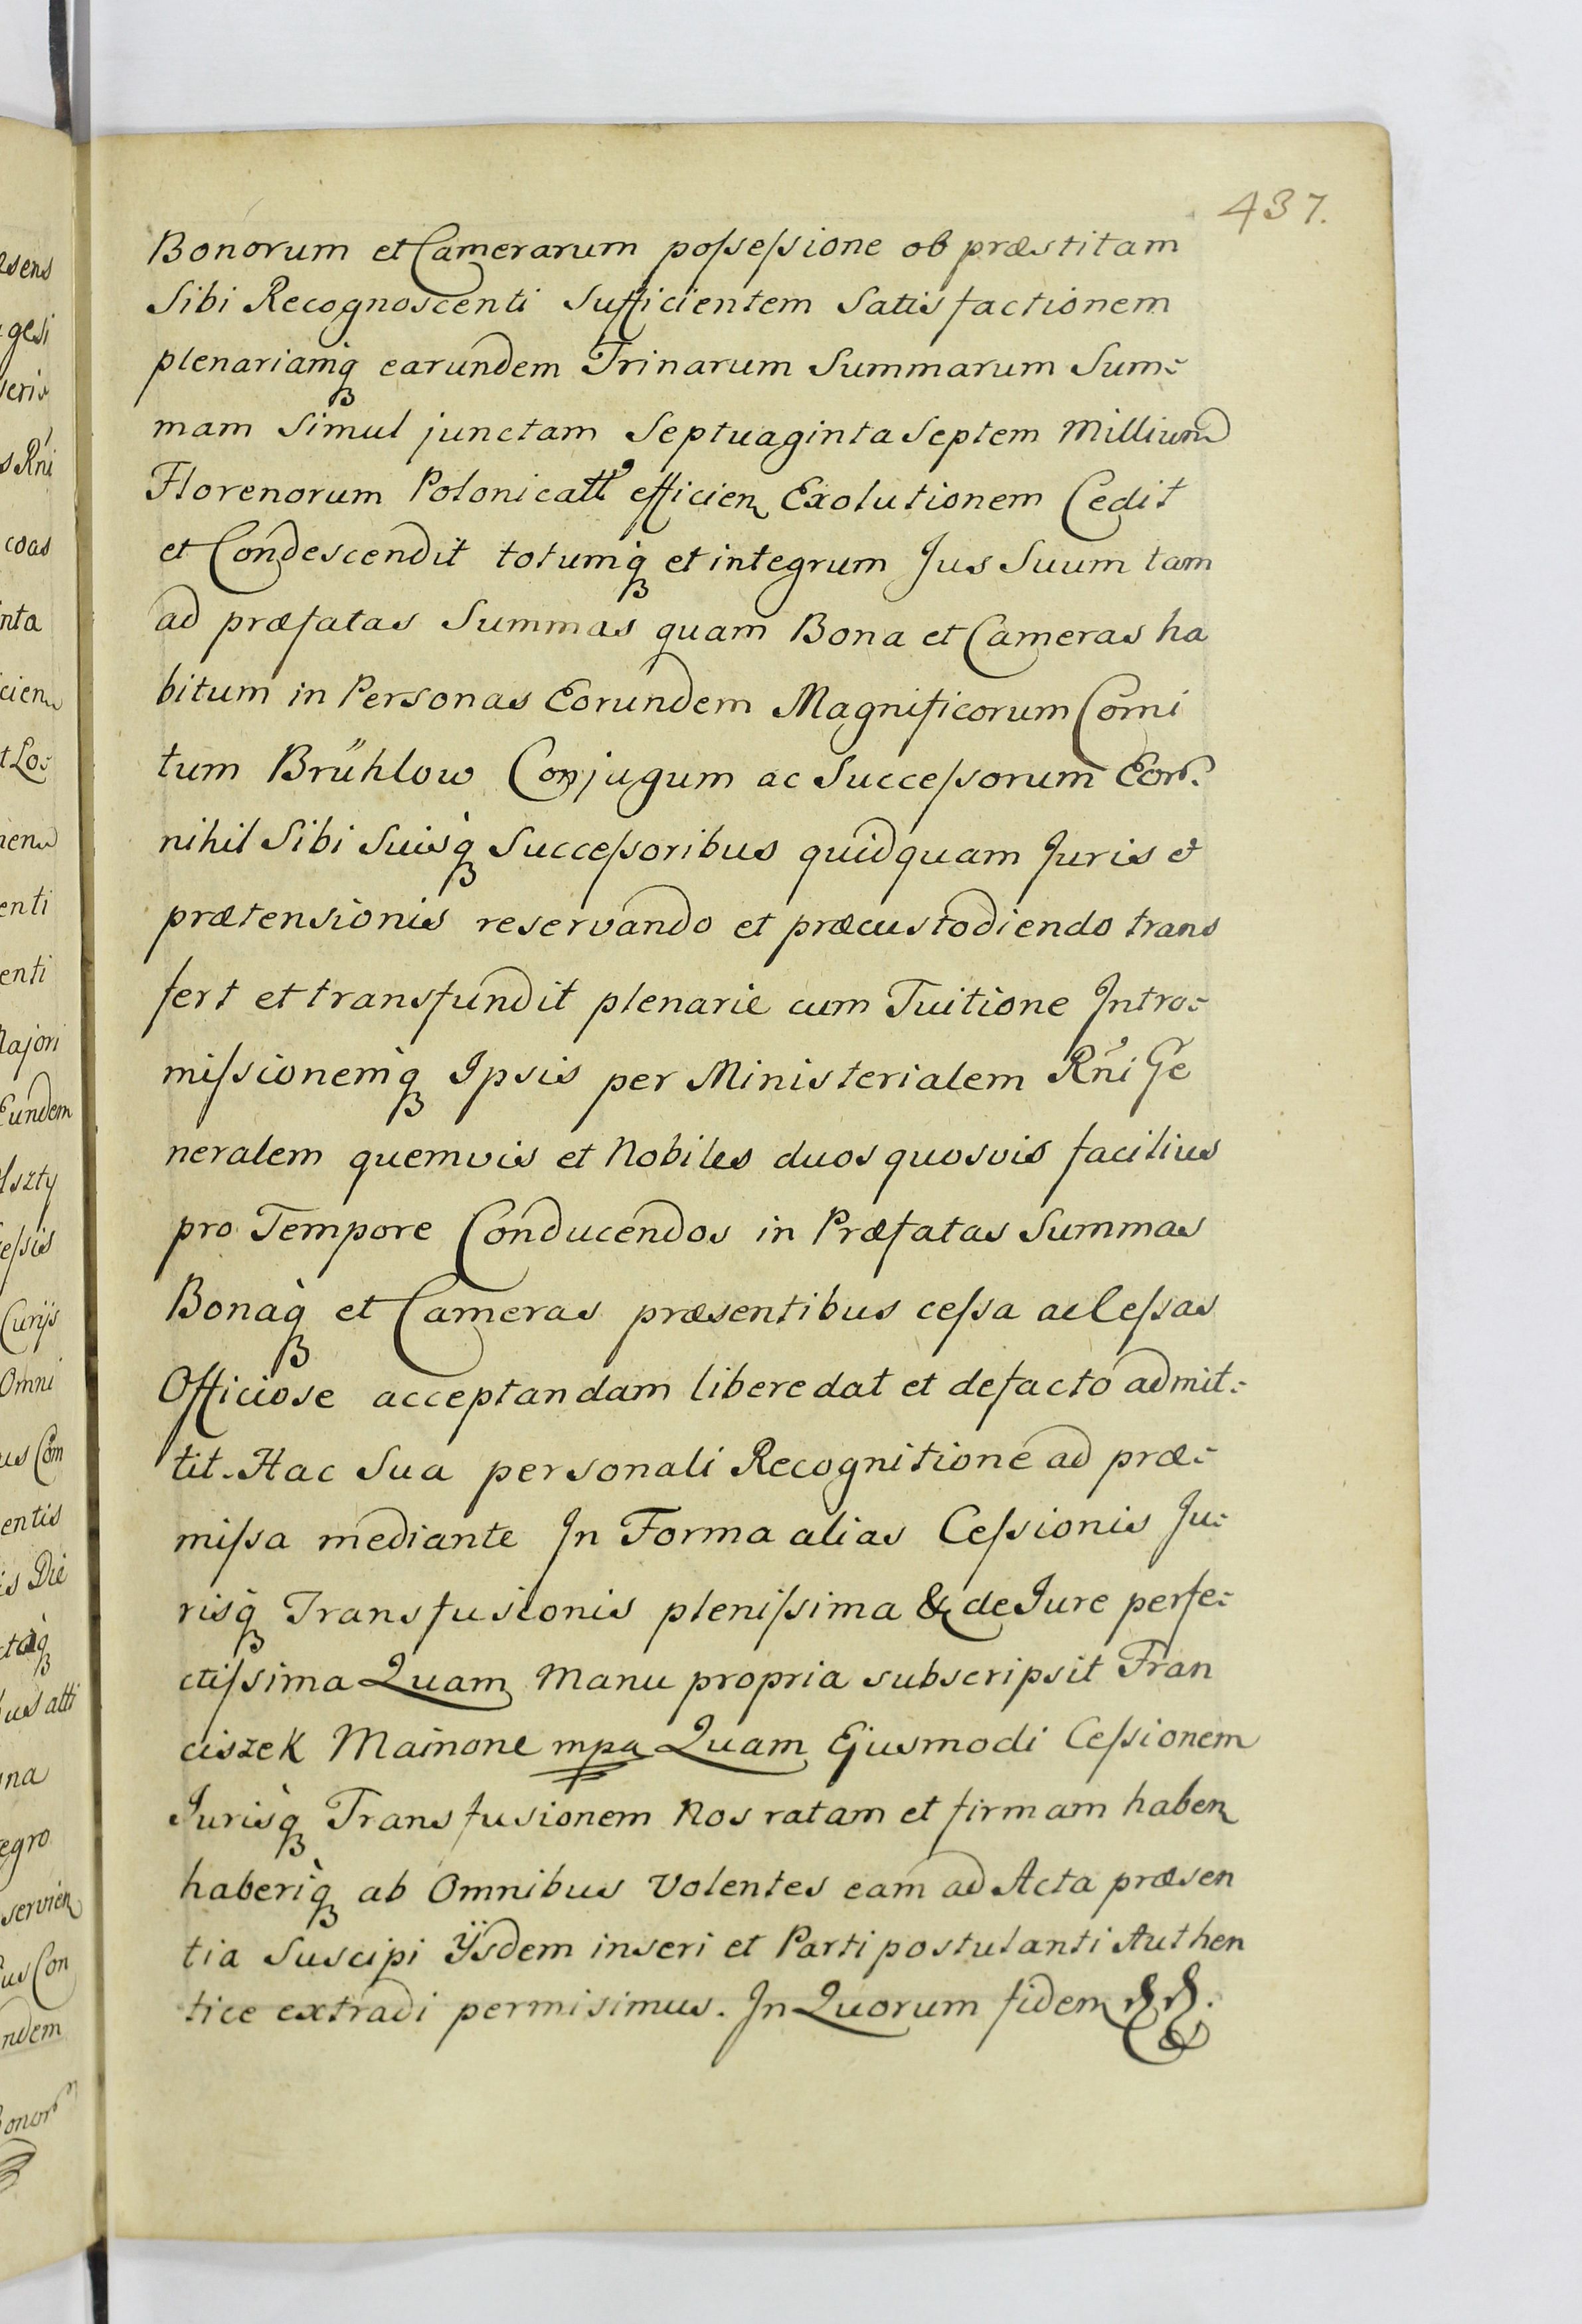 437.
Bonorum et Camerarum poſseſsione ob præstitam
Sibi Recognoscenti Sufficientem Satisfactionem
plenariamq́ꝫ earundem Trinarum Summarum Sum-
mam Simul junctam Septuaginta Septem Millium
Florenorum Polonicatt efficien Exolutionem Cedit
et Condescendit totumq́ꝫ et integrum Jus Suum tam
ad præfatas Summas quam Bona et Cameras ha
bitum in Personas Eorundem Magnificorum Comi
tum Brűhlow Conjugum ac Succeſsorum Eor.
nihil Sibi Suisq̀ꝫ Succeſsoribus quidquam Juris et
prætensionis reservando et præcustodiendo trans
fert et transfundit plenarie cum Tuitione Intro-
miſsionemq́ꝫ Ipsis per Ministerialem Rñi Ge
neralem quemvis et Nobiles duos quosvis facilius
pro Tempore Conducendos in Præfatas Summas
Bonaq̀ꝫ et Cameras præsentibus ceſsa ac Ceſsas
Officiose acceptandam libere dat et defacto admit-
tit. Hac Sua personali Recognitione ad præ-
miſsa mediante In Forma alias Ceſsionis Ju-
risq̀ꝫ Transfusionis pleniſsima & de Jure perfe-
ctiſsima Quam Manu propria subscripsit Fran
ciszek Mainone mpa Quam Ejusmodi Ceſsionem
Jurisq̀ꝫ Transfusionem Nos ratam et firmam haben
haberiq̀ꝫ ab Omnibus Volentes eam ad Acta præsen
tia Suscipi Ÿsdem inseri et Parti postulanti Authen
tice extradi permisimus. In Quorum fidem
esens
gesi
s Rñi
coas
nta
cien
enti
enti
Majori
Eundem
lszty
eſsis
Curijs
Omni
us Com
entis
is Die
us atti
na
egro
servien
us Con
ndem
onor